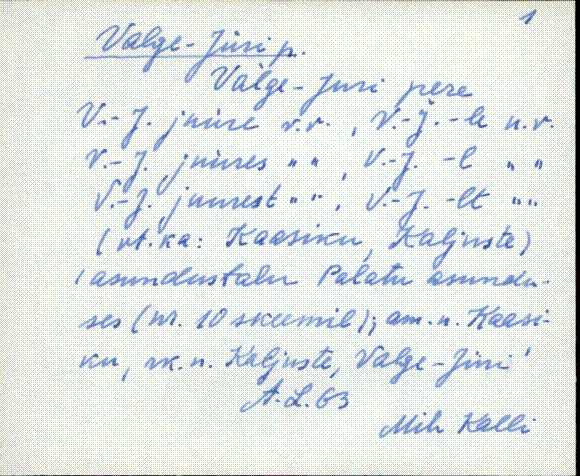 1
Valge-Jüri p.
Valge-Juri pere
V.-J. juure v.v., V.-J.-le n.v.
V.-J. juures " ", V.-J. -l " "
V.-J. juurest " ", V.-J. -lt " "
(vt. ka: Kaasiku, Kaljuste)
'asundustalu Palatu asundu-
ses (nr. 10 skeemil); am. n. Kaasi-
ku, rk. n. Kaljuste, Valge-Jüri'
A.L. 63
Mih Kalli